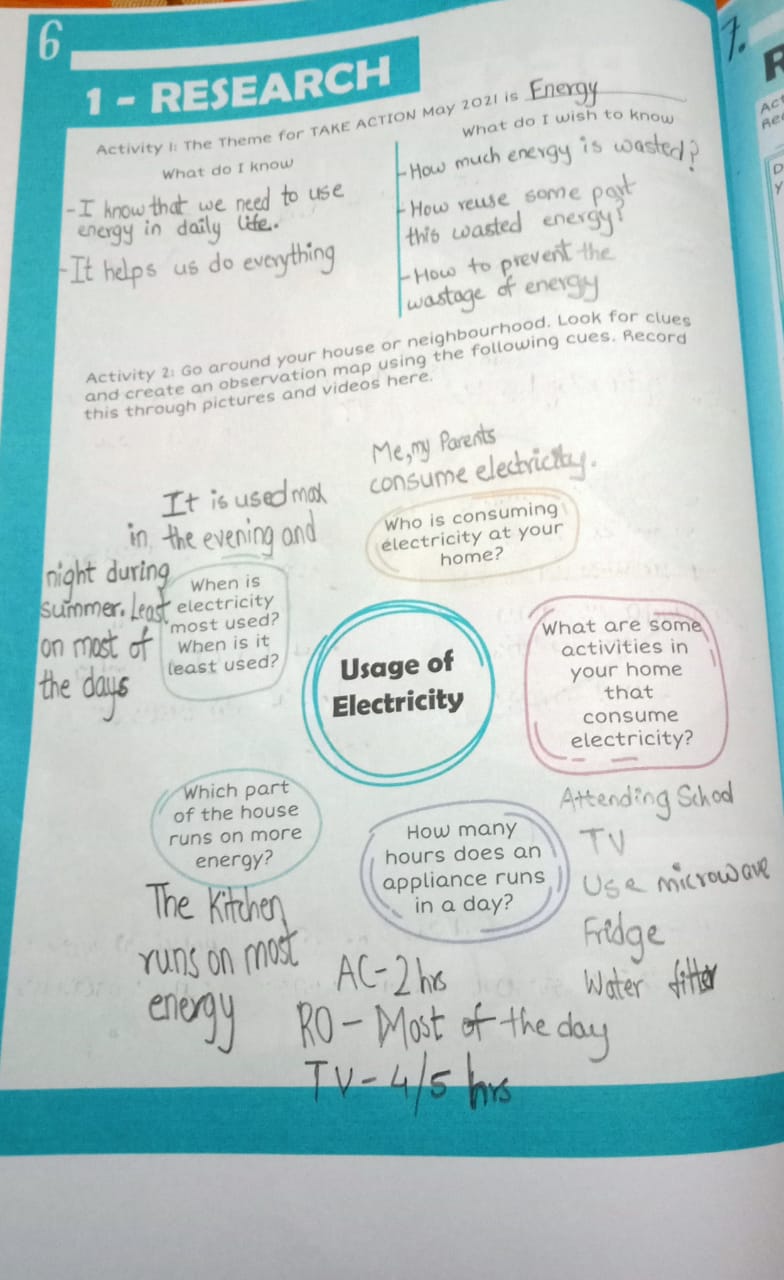 6
1 - RESEARCH
Activity 1: The Theme for TAKE ACTION May 2021 is Energy
What do I know
-I know that we need to use
energy in daily life.
-It helps us do everything
What do I wish to know
-How much energy is wasted?
-How reuse some part
this wasted energy?
-How to prevent the
wastage of energy
Activity 2: Go around your house or neighbourhood. Look for clues
and create an observation map using the following cues. Record
this through pictures and videos here.
Me, my Parents
consume electricity.
Who is consuming
electricity at your
home?
It is used max
in the evening and
night during
summer. Least
on most of
the days
When is
electricity
most used?
When is it
least used?
Usage of
Electricity
What are some
activities in
your home
that
consume
electricity?
Attending School
TV
Use microwave
Fridge
Water filter
Which part
of the house
runs on more
energy?
The Kitchen
runs on most
energy
How many
hours does an
appliance runs
in a day?
AC-2 hrs
RO - Most of the day
TV-4/5 hrs
7.
R